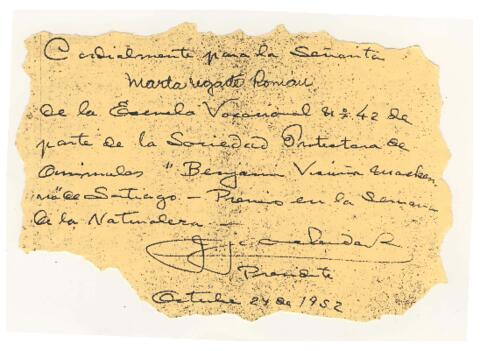 Cordialmente para la Señorita
Marta Ugarte Roman
de la Escuela Vocacional Nº 42 de
parte de la Sociedad Protectora de
Animales "Benjamin Vicuña Macken
na" de Santiago - Premio en la Semana
de la Naturaleza -
Presidente
Octubre 24 de 1952